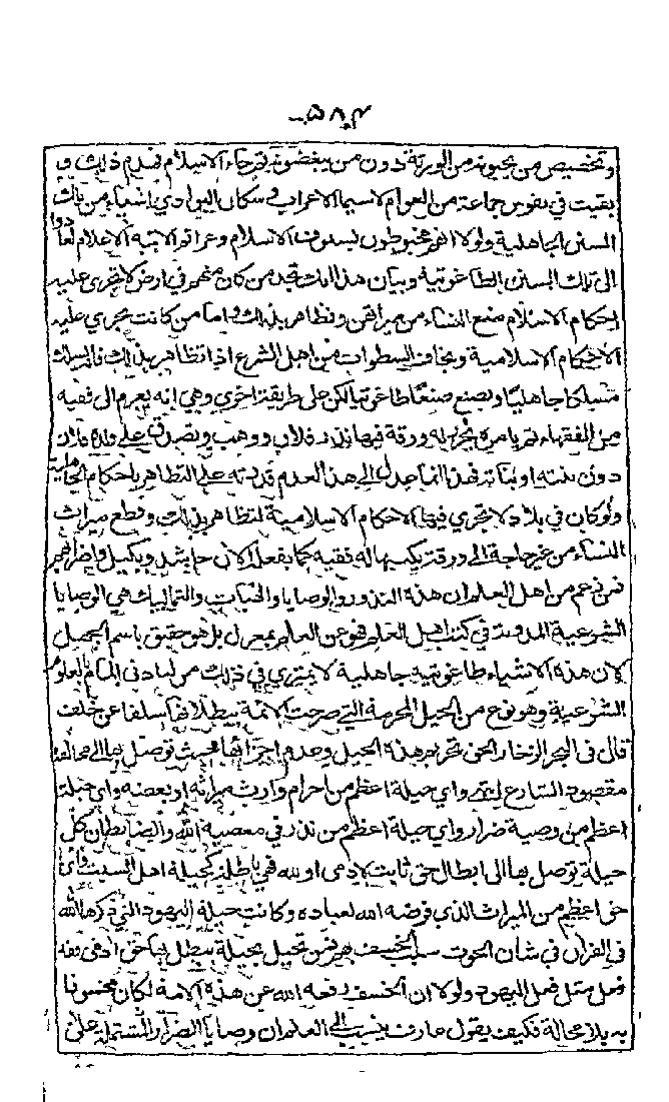 ٥٨٣
وتخصيص من يحبونه من الورثة دون من يبغضونه ثم جاء الاسلام فهدم ذلك و
بقيت في نفوس جماعة من العوام لاسيما الاعراب و سكان البوادي اشياء من تلك
السنن الجاهلية ولولا انهم مخبوطون بسوط الاسلام و الائمة الاعلام لعادوا
الى تلك السنن الطاغوتية وبيان هذا انك تجد من كان منهم في ارض لا تجري عليه
احكام الاسلام منع النساء من ميراثهن وتظاهر بذلك واما من كانت تجري عليه
الاحكام الاسلامية ويخاف السطوات من اهل الشرع اذا تظاهر بذلك فانه يسلك
مسلكا جاهليا ويصنع صنعا طاغوتيا لكن على طريقة اخرى وهي انه يعزم الى فقيه
من الفقهاء ثم يامره يحرر له ورقة فيها نذر فلان ووهب وتصدق على ولده فلان
دون بنته او بناته فهذا انما عدل الى هذا لعدم قدرته على التظاهر باحكام الجاهلية
ولو كان في بلاد لا تجري فيها الاحكام الاسلامية لتظاهر بذلك وقطع ميراث
النساء من غير حاجة الى ورقة يكتبها له فقيه كما يفعل الان حاشد وبكيل واضرابهم
فمن زعم من اهل العلم ان هذه النذور والوصايا والهبات والتمليك هي الوصايا
الشرعية المدونة في كتب اهل العلم فهو عن العلم بمعزل بل هو حقيق باسم الجهل
لان هذه الاشياء طاغوتية جاهلية لا يمتري في ذلك من له ادنى المام بالعلوم
الشرعية وهو نوع من الحيل المحرمة التي صرحت الائمة ببطلانها سلفا عن خلف
قال في البحر الزخار الحق تحريم هذه الحيل وعدم اجزائها حيث توصل بها الى مخالفة
مقصود الشارع ليتم واي حيلة اعظم من احرام وارث ميراثه او بعضه واي حيلة
اعظم من وصية ضرار واي حيلة اعظم من نذر في معصية الله والضابط ان كل
حيلة توصل بها الى ابطال حق ثابت لادمي او لله فهي باطلة كحيلة اهل السبت واي
حق اعظم من الميراث الذي فرضه الله لعباده وكانت حيلة اليهود التي ذكرها الله
في القران في شان الحوت سبب الخسف بهم فمن تحيل بحيلة يبطل بها حق ادمي فقد
فعل مثل فعل اليهود ولولا ان الخسف رفعه الله عن هذه الامة لكان مخسوفا
به بلا محالة فكيف يقول عارف ينسب الى العلم ان وصايا الضرار المشتملة على